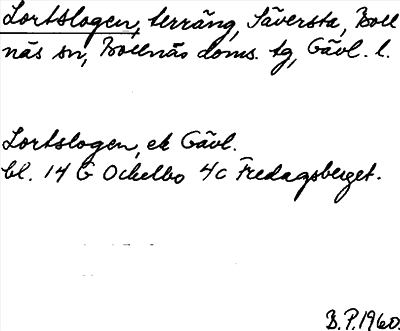 Lortslogen, terräng, Säversta, Boll
näs sn, Bollnäs doms. tg, Gävl. l.
Lortslogen, ek Gävl.
bl. 14 G Ockelbo 4c Fredagsberget.
B.P. 1960.